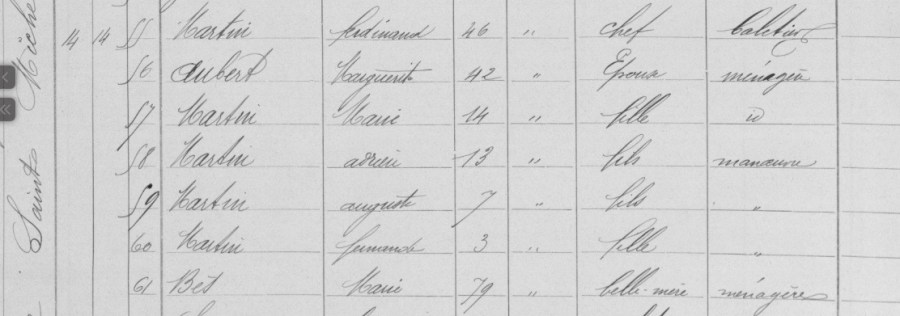 Sainte Miche
14 14 55 Martin ferdinand 46 " chef
56 Aubert Marguerite 42 " Epouse ménagère
57 Martin Marie 14 " fille id
58 Martin adrien 13 " fils manœuvre
59 Martin auguste 7 " fils "
60 Martin fernande 3 " fille "
61 Bès Marie 79 " belle-mère ménagère